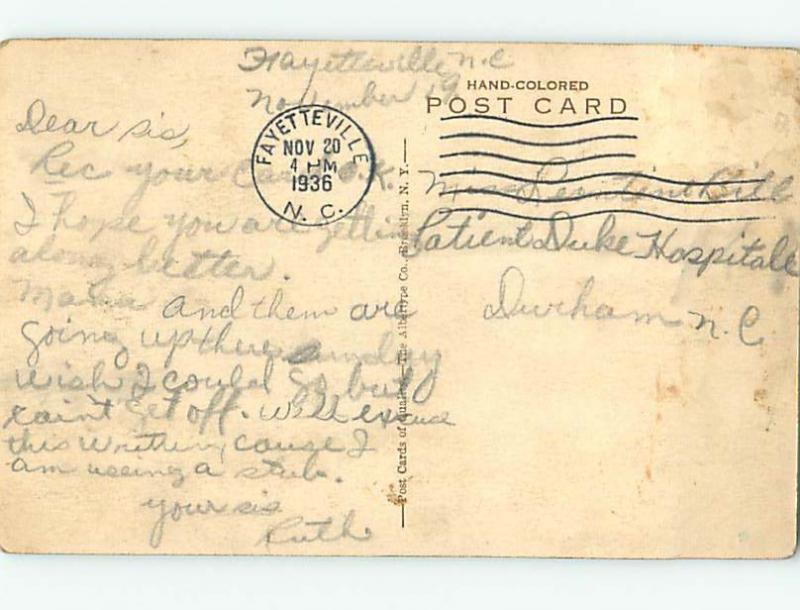 Fayetteville, N.C
November 19
Dear Sis,
Rec your Card O.K.
I hope you are getting
along better.
Mama and them are
going up there Sunday
wish I could go but I
caint get off. Will excuse
this writting cauze I
am useing a stub.
your sis
Ruth
FAYETTEVILLE
NOV 20
4 PM
1936
N. C.
Post Cards of Quality.—The Albertype Co., Brooklyn, N. Y.
HAND-COLORED
POST CARD
Miss
Patient Duke Hospitall
Durham N.C.